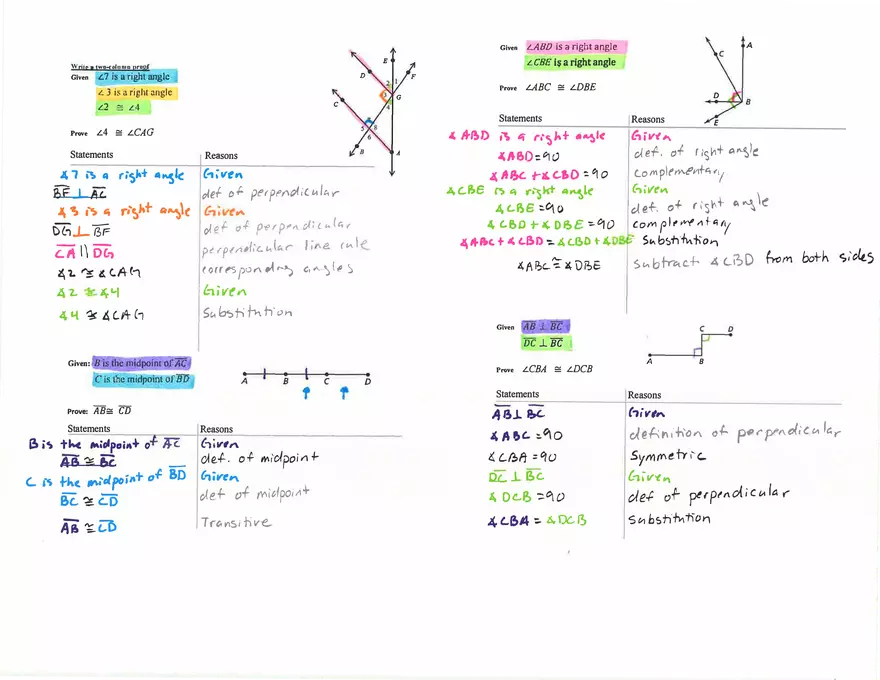 Write a two-column proof
Given ∠7 is a right angle
∠3 is a right angle
∠2 ≅ ∠4
Prove ∠4 ≅ ∠CAG
Statements Reasons
∡7 is a right angle Given
BF ⊥ AC def of perpendicular
∡3 is a right angle Given
DG ⊥ BF def of perpendicular
CA || DG perpendicular line rule
∡2 ≅ ∡CAG corresponding angles
∡2 ≅ ∡4 Given
∡4 ≅ ∡CAG Substitution
E
D
F
2 1
3 G
4
C
5 8
6
B
A
Given: B is the midpoint of AC
C is the midpoint of BD
A B C D
Prove: AB ≅ CD
Statements Reasons
B is the midpoint of AC Given
AB ≅ BC def. of midpoint
C is the midpoint of BD Given
BC ≅ CD def of midpoint
AB ≅ CD Transitive
Given ∠ABD is a right angle
∠CBE is a right angle
Prove ∠ABC ≅ ∠DBE
A
C
D
B
E
Statements Reasons
∡ABD is a right angle Given
∡ABD=90 def. of right angle
∡ABC + ∡CBD =90 Complementary
∡CBE is a right angle Given
∡CBE =90 def. of right angle
∡CBD + ∡DBE =90 complementary
∡ABC + ∡CBD = ∡CBD + ∡DBE Substitution
∡ABC ≅ ∡DBE Subtract ∡CBD from both sides
Given AB ⊥ BC
DC ⊥ BC
Prove ∠CBA ≅ ∠DCB
C D
A B
Statements Reasons
AB ⊥ BC Given
∡ABC =90 definition of perpendicular
∡CBA =90 Symmetric
DC ⊥ BC Given
∡DCB =90 def of perpendicular
∡CBA = ∡DCB Substitution